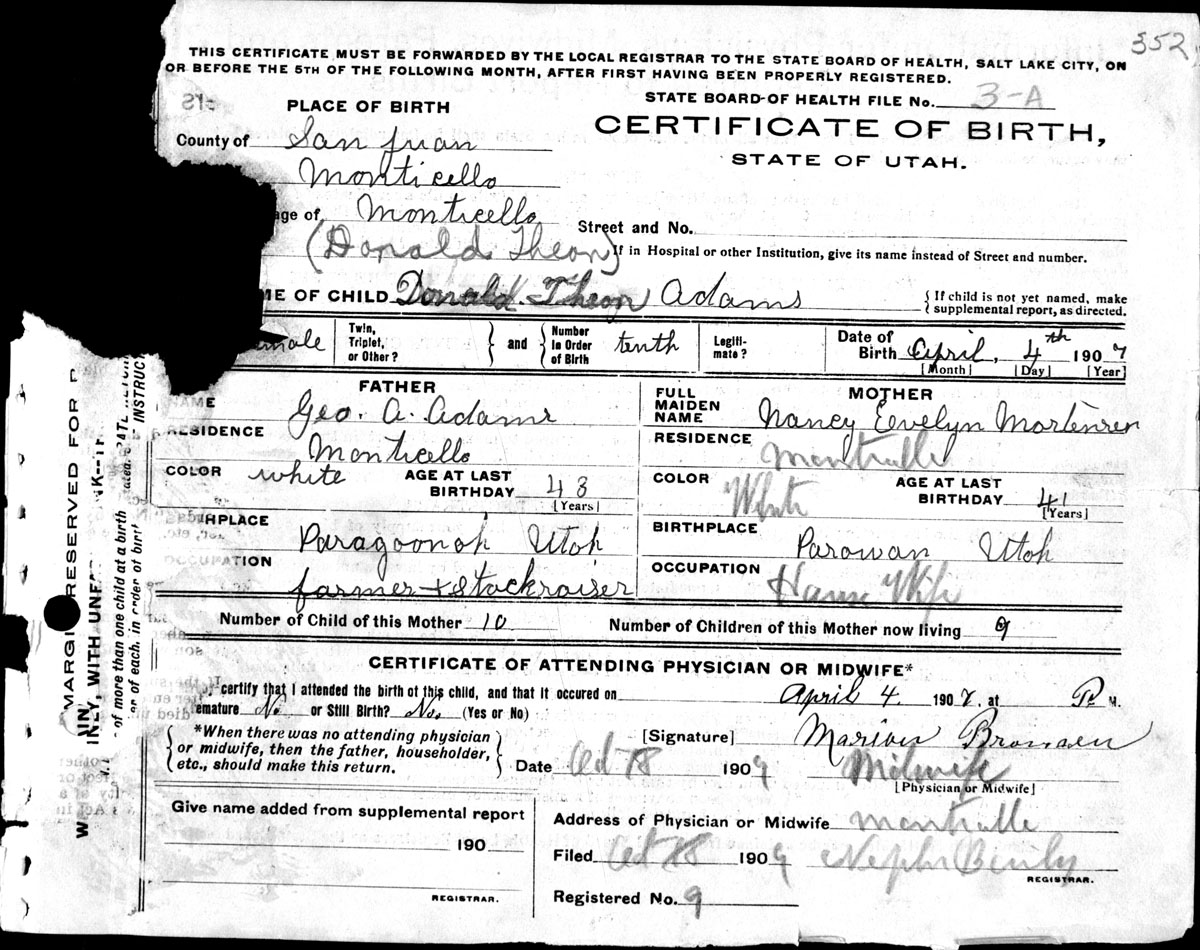 352
THIS CERTIFICATE MUST BE FORWARDED BY THE LOCAL REGISTRAR TO THE STATE BOARD OF HEALTH, SALT LAKE CITY, ON
OR BEFORE THE 5TH OF THE FOLLOWING MONTH, AFTER FIRST HAVING BEEN PROPERLY REGISTERED.
STATE BOARD OF HEALTH FILE No. 3-A
PLACE OF BIRTH
CERTIFICATE OF BIRTH,
STATE OF UTAH.
County of San Juan
Monticello
age of Monticello
Street and No.
(Donald Theon)
If in Hospital or other Institution, give its name instead of Street and number.
ME OF CHILD Donald Theon Adams
{ If child is not yet named, make
supplemental report, as directed.
male
Twin,
Triplet,
or Other?
and
Number
in Order
of Birth
tenth
Legiti-
mate?
Date of
Birth April, 4th 1907
[Month] [Day] [Year]
FATHER
NAME Geo. A. Adams
RESIDENCE
Monticello
COLOR white
AGE AT LAST
BIRTHDAY 43
[Years]
THPLACE Paragoonah Utah
OCCUPATION
farmer + Stockraiser
MOTHER
FULL
MAIDEN
NAME Nancy Evelyn Mortensen
RESIDENCE
COLOR White
AGE AT LAST
BIRTHDAY 41
[Years]
BIRTHPLACE
Parowan Utah
OCCUPATION
House Wife
Number of Child of this Mother 10
Number of Children of this Mother now living 9
CERTIFICATE OF ATTENDING PHYSICIAN OR MIDWIFE*
I certify that I attended the birth of this child, and that it occured on April 4. 1907. at P. M.
emature No or Still Birth? No. (Yes or No)
{ *When there was no attending physician
or midwife, then the father, householder,
etc., should make this return. }
[Signature] Marion Bronsen
Date Oct 18 1909 Midwife
[Physician or Midwife]
Give name added from supplemental report
190
REGISTRAR.
Address of Physician or Midwife
Filed Oct 18 1909
REGISTRAR.
Registered No. 9
MARGIN RESERVED FOR
INLY, WITH UNFA
of more than one child at a birth
or of each, in order of birt
INSTRUC